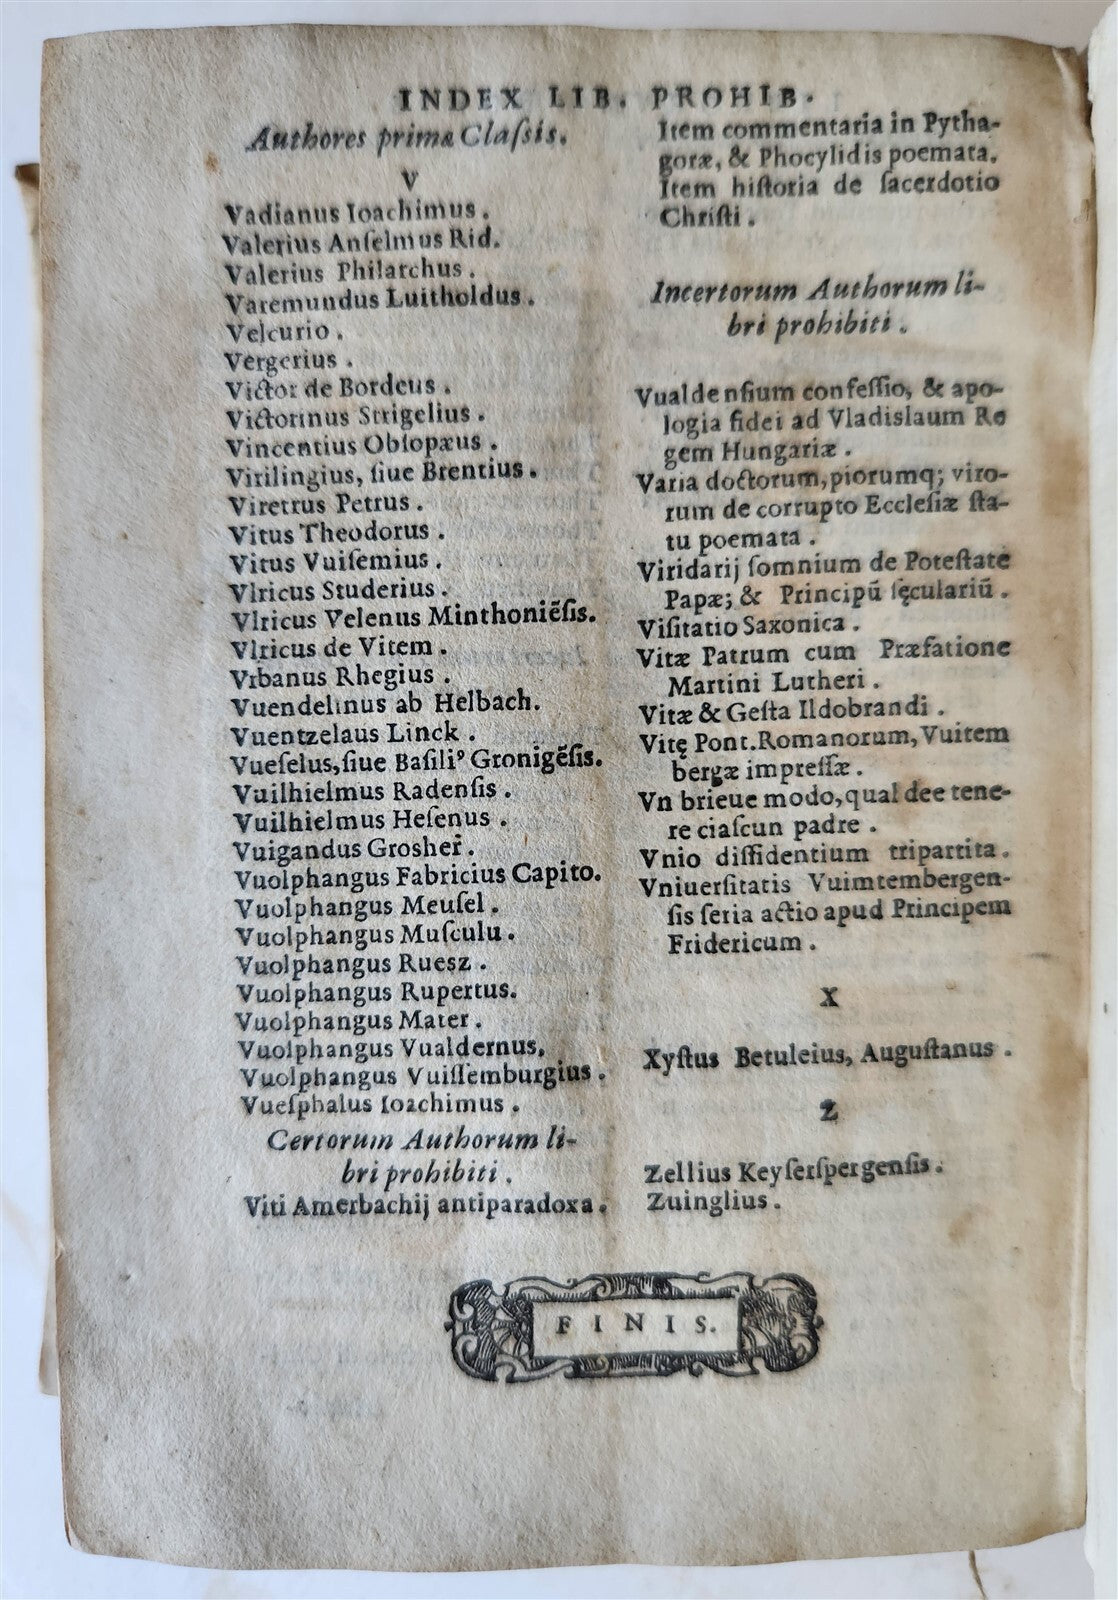 INDEX LIB. PROHIB.
Authores primæ Claſsis.
V
Vadianus Ioachimus.
Valerius Anſelmus Rid.
Valerius Philarchus.
Varemundus Luitholdus.
Velcurio.
Vergerius.
Victor de Bordeus.
Victorinus Strigelius.
Vincentius Obſopæus.
Virilingius, ſiue Brentius.
Viretrus Petrus.
Vitus Theodorus.
Vitus Vuiſemius.
Vlricus Studerius.
Vlricus Velenus Minthoniẽſis.
Vlricus de Vitem.
Vrbanus Rhegius.
Vuendelinus ab Helbach.
Vuentzelaus Linck.
Vueſelus, ſiue Baſiliꝰ Gronigẽſis.
Vuilhielmus Radenſis.
Vuilhielmus Heſenus.
Vuigandus Grosher.
Vuolphangus Fabricius Capito.
Vuolphangus Meuſel.
Vuolphangus Muſculu.
Vuolphangus Ruesz.
Vuolphangus Rupertus.
Vuolphangus Mater.
Vuolphangus Vualdernus.
Vuolphangus Vuiſſemburgius.
Vueſphalus Ioachimus.
Certorum Authorum li-
bri prohibiti.
Viti Amerbachij antiparadoxa.
Item commentaria in Pytha-
goræ, & Phocylidis poemata.
Item hiſtoria de ſacerdotio
Chriſti.
Incertorum Authorum li-
bri prohibiti.
Vualdenſium confeſſio, & apo-
logia fidei ad Vladislaum Re
gem Hungariæ.
Varia doctorum, piorumq; viro-
rum de corrupto Eccleſiæ ſta-
tu poemata.
Viridarij ſomnium de Poteſtate
Papæ; & Principũ ſęculariũ.
Viſitatio Saxonica.
Vitæ Patrum cum Præfatione
Martini Lutheri.
Vitæ & Geſta Ildobrandi.
Vitę Pont. Romanorum, Vuitem
bergæ impreſſæ.
Vn brieue modo, qual dee tene-
re ciaſcun padre.
Vnio diſſidentium tripartita.
Vniuerſitatis Vuimtembergen-
ſis ſeria actio apud Principem
Fridericum.
X
Xyſtus Betuleius, Auguſtanus.
Z
Zellius Keyſerſpergenſis.
Zuinglius.
FINIS.